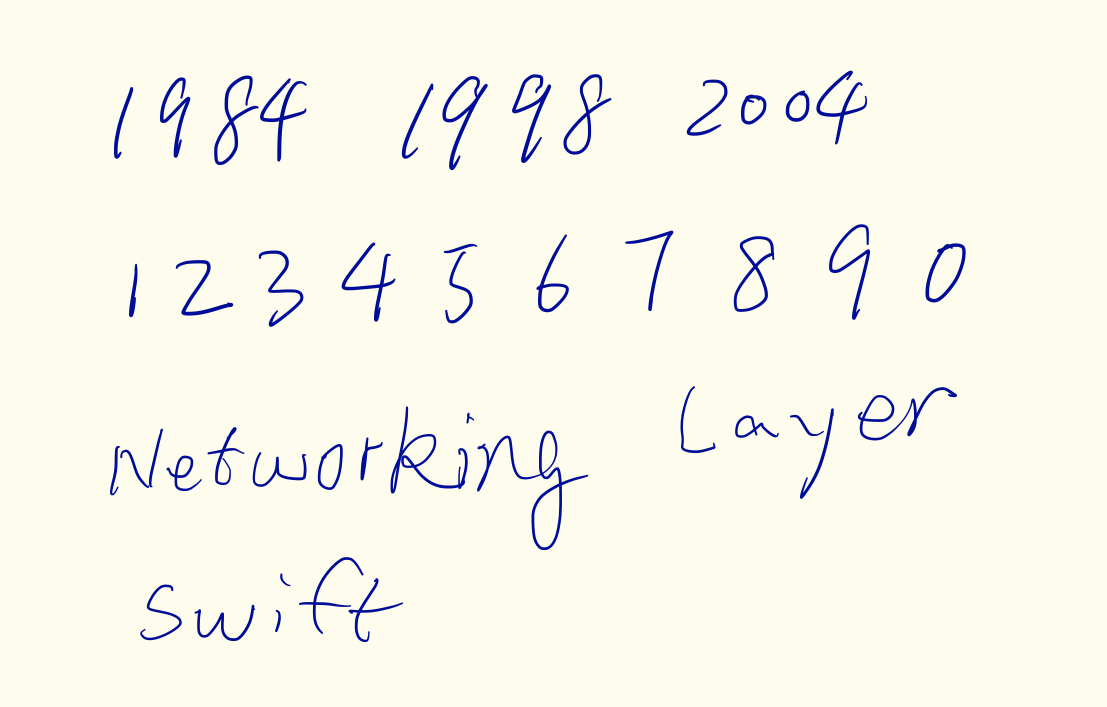 1984 1998 2004
1 2 3 4 5 6 7 8 9 0
Networking Layer
Swift